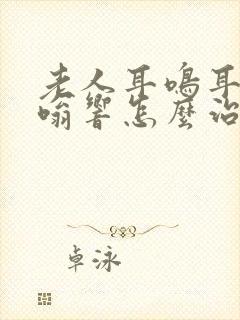 老人耳鳴耳
嗡響怎麼治
卓泳